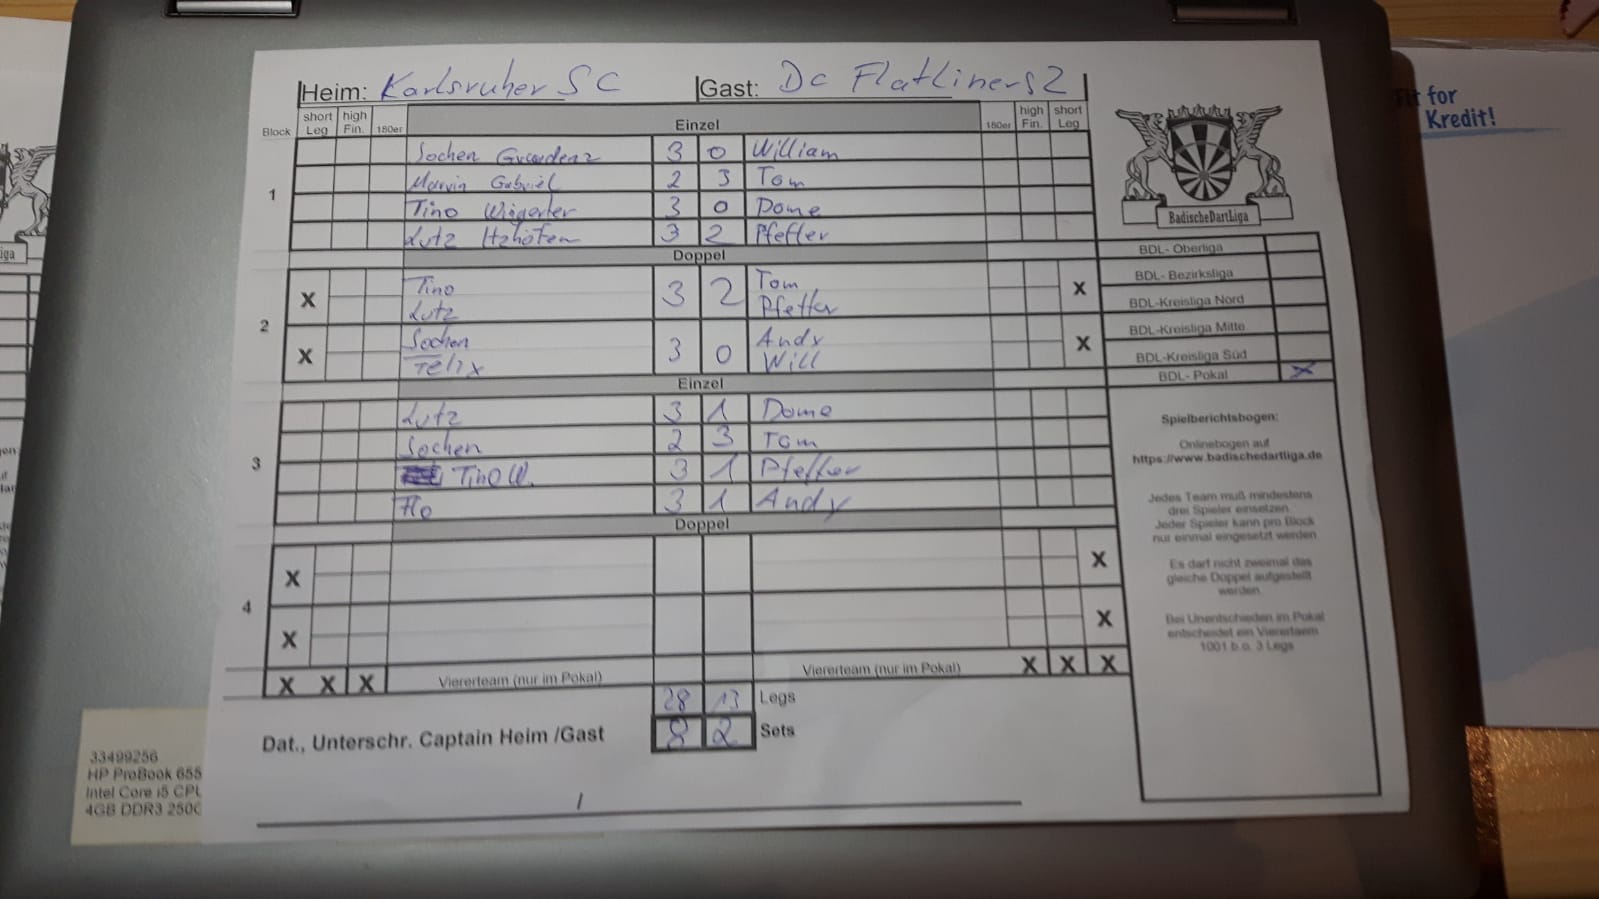 Heim: Karlsruher SC Gast: Dc Flatliners 2
Block short Leg high Fin. 180er Einzel 180er high Fin. short Leg
1
Jochen 3 0 William
Marvin Gabriel 2 3 Tom
Tino Wiegerter 3 0 Dome
Lutz Itzhöfen 3 2 Pfeffer
Doppel
2
X Tino Lutz 3 2 Tom Pfeffer X
X Jochen Felix 3 0 Andy Will X
Einzel
3
Lutz 3 1 Dome
Jochen 2 3 Tom
Tino W. 3 1 Pfeffer
Flo 3 1 Andy
Doppel
4
X X
X X
X X X Viererteam (nur im Pokal) Viererteam (nur im Pokal) X X X
28 13 Legs
8 2 Sets
Dat., Unterschr. Captain Heim /Gast
/
BadischeDartLiga
BDL- Oberliga
BDL- Bezirksliga
BDL-Kreisliga Nord
BDL-Kreisliga Mitte
BDL-Kreisliga Süd
BDL- Pokal X
Spielberichtsbogen:
Onlinebogen auf
https://www.badischedartliga.de
Jedes Team muß mindestens
drei Spieler einsetzen.
Jeder Spieler kann pro Block
nur einmal eingesetzt werden
Es darf nicht zweimal das
gleiche Doppel aufgestellt
werden.
Bei Unentschieden im Pokal
entscheidet ein Viererteam
1001 b.o. 3 Legs
33499256
HP ProBook 655
Intel Core i5 CPU
4GB DDR3 250G
Fit for
Kredit!